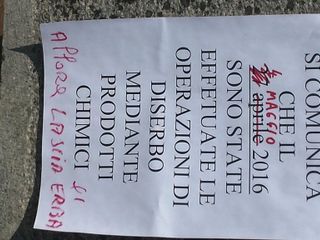 SI COMUNICA
CHE IL
MAGGIO
aprile 2016
SONO STATE
EFFETUATE LE
OPERAZIONI DI
DISERBO
MEDIANTE
PRODOTTI
CHIMICI
Allora LASCIA ERBA